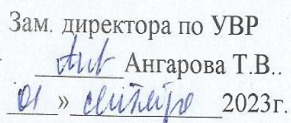 Зам. директора по УВР
Ангарова Т.В..
01 » сентября 2023г.